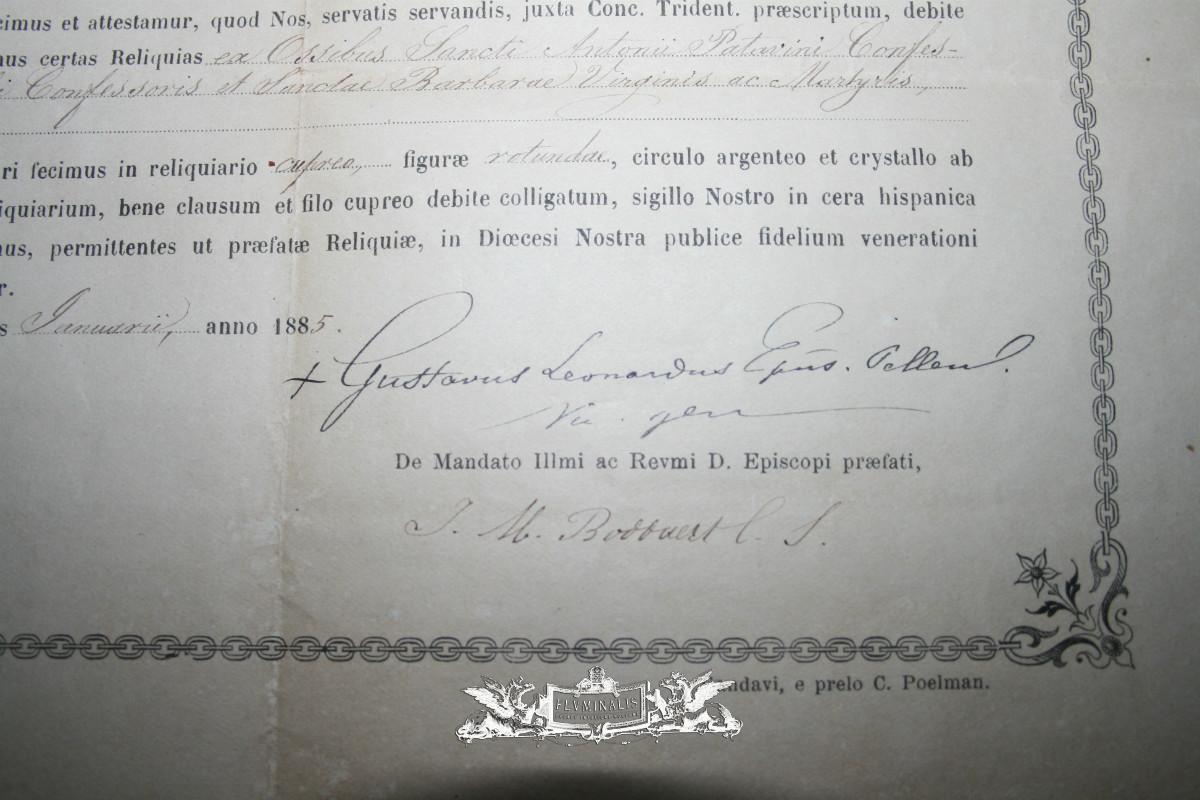 cimus et attestamur, quod Nos, servatis servandis, juxta Conc. Trident. præscriptum, debite
mus certas Reliquias ex Ossibus Sancti Antonii Patavini Confes-
i Confessoris et Sanctae Barbarae Virginis ac Martyris,
ri fecimus in reliquiario cupreo, figuræ rotundae, circulo argenteo et crystallo ab
iquiarium, bene clausum et filo cupreo debite colligatum, sigillo Nostro in cera hispanica
mus, permittentes ut præfatæ Reliquiæ, in Diœcesi Nostra publice fidelium venerationi
r.
s Januarii, anno 1885.
+ Gustavus Leonardus Epūs. Pellen.
Vic. gen
De Mandato Illmi ac Revmi D. Episcopi præfati,
J. M. Bodvaert C. S.
ndavi, e prelo C. Poelman.
FLVMINALIS